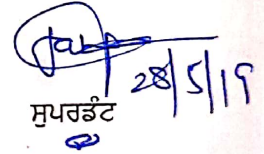 28/5/19
ਸੁਪਰਡੰਟ